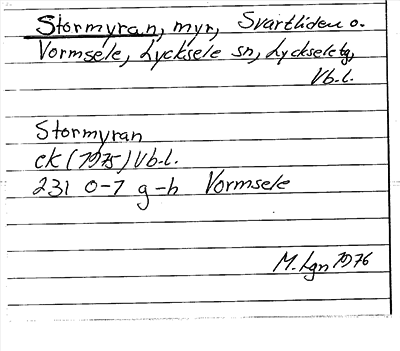 Stormyran, myr, Svartliden o.
Vormsele, Lycksele sn, Lycksele tg,
Vb.l.
Stormyran
EK (1975) Vb.l.
231 0-7 g-h Vormsele
M. Lgn 1976